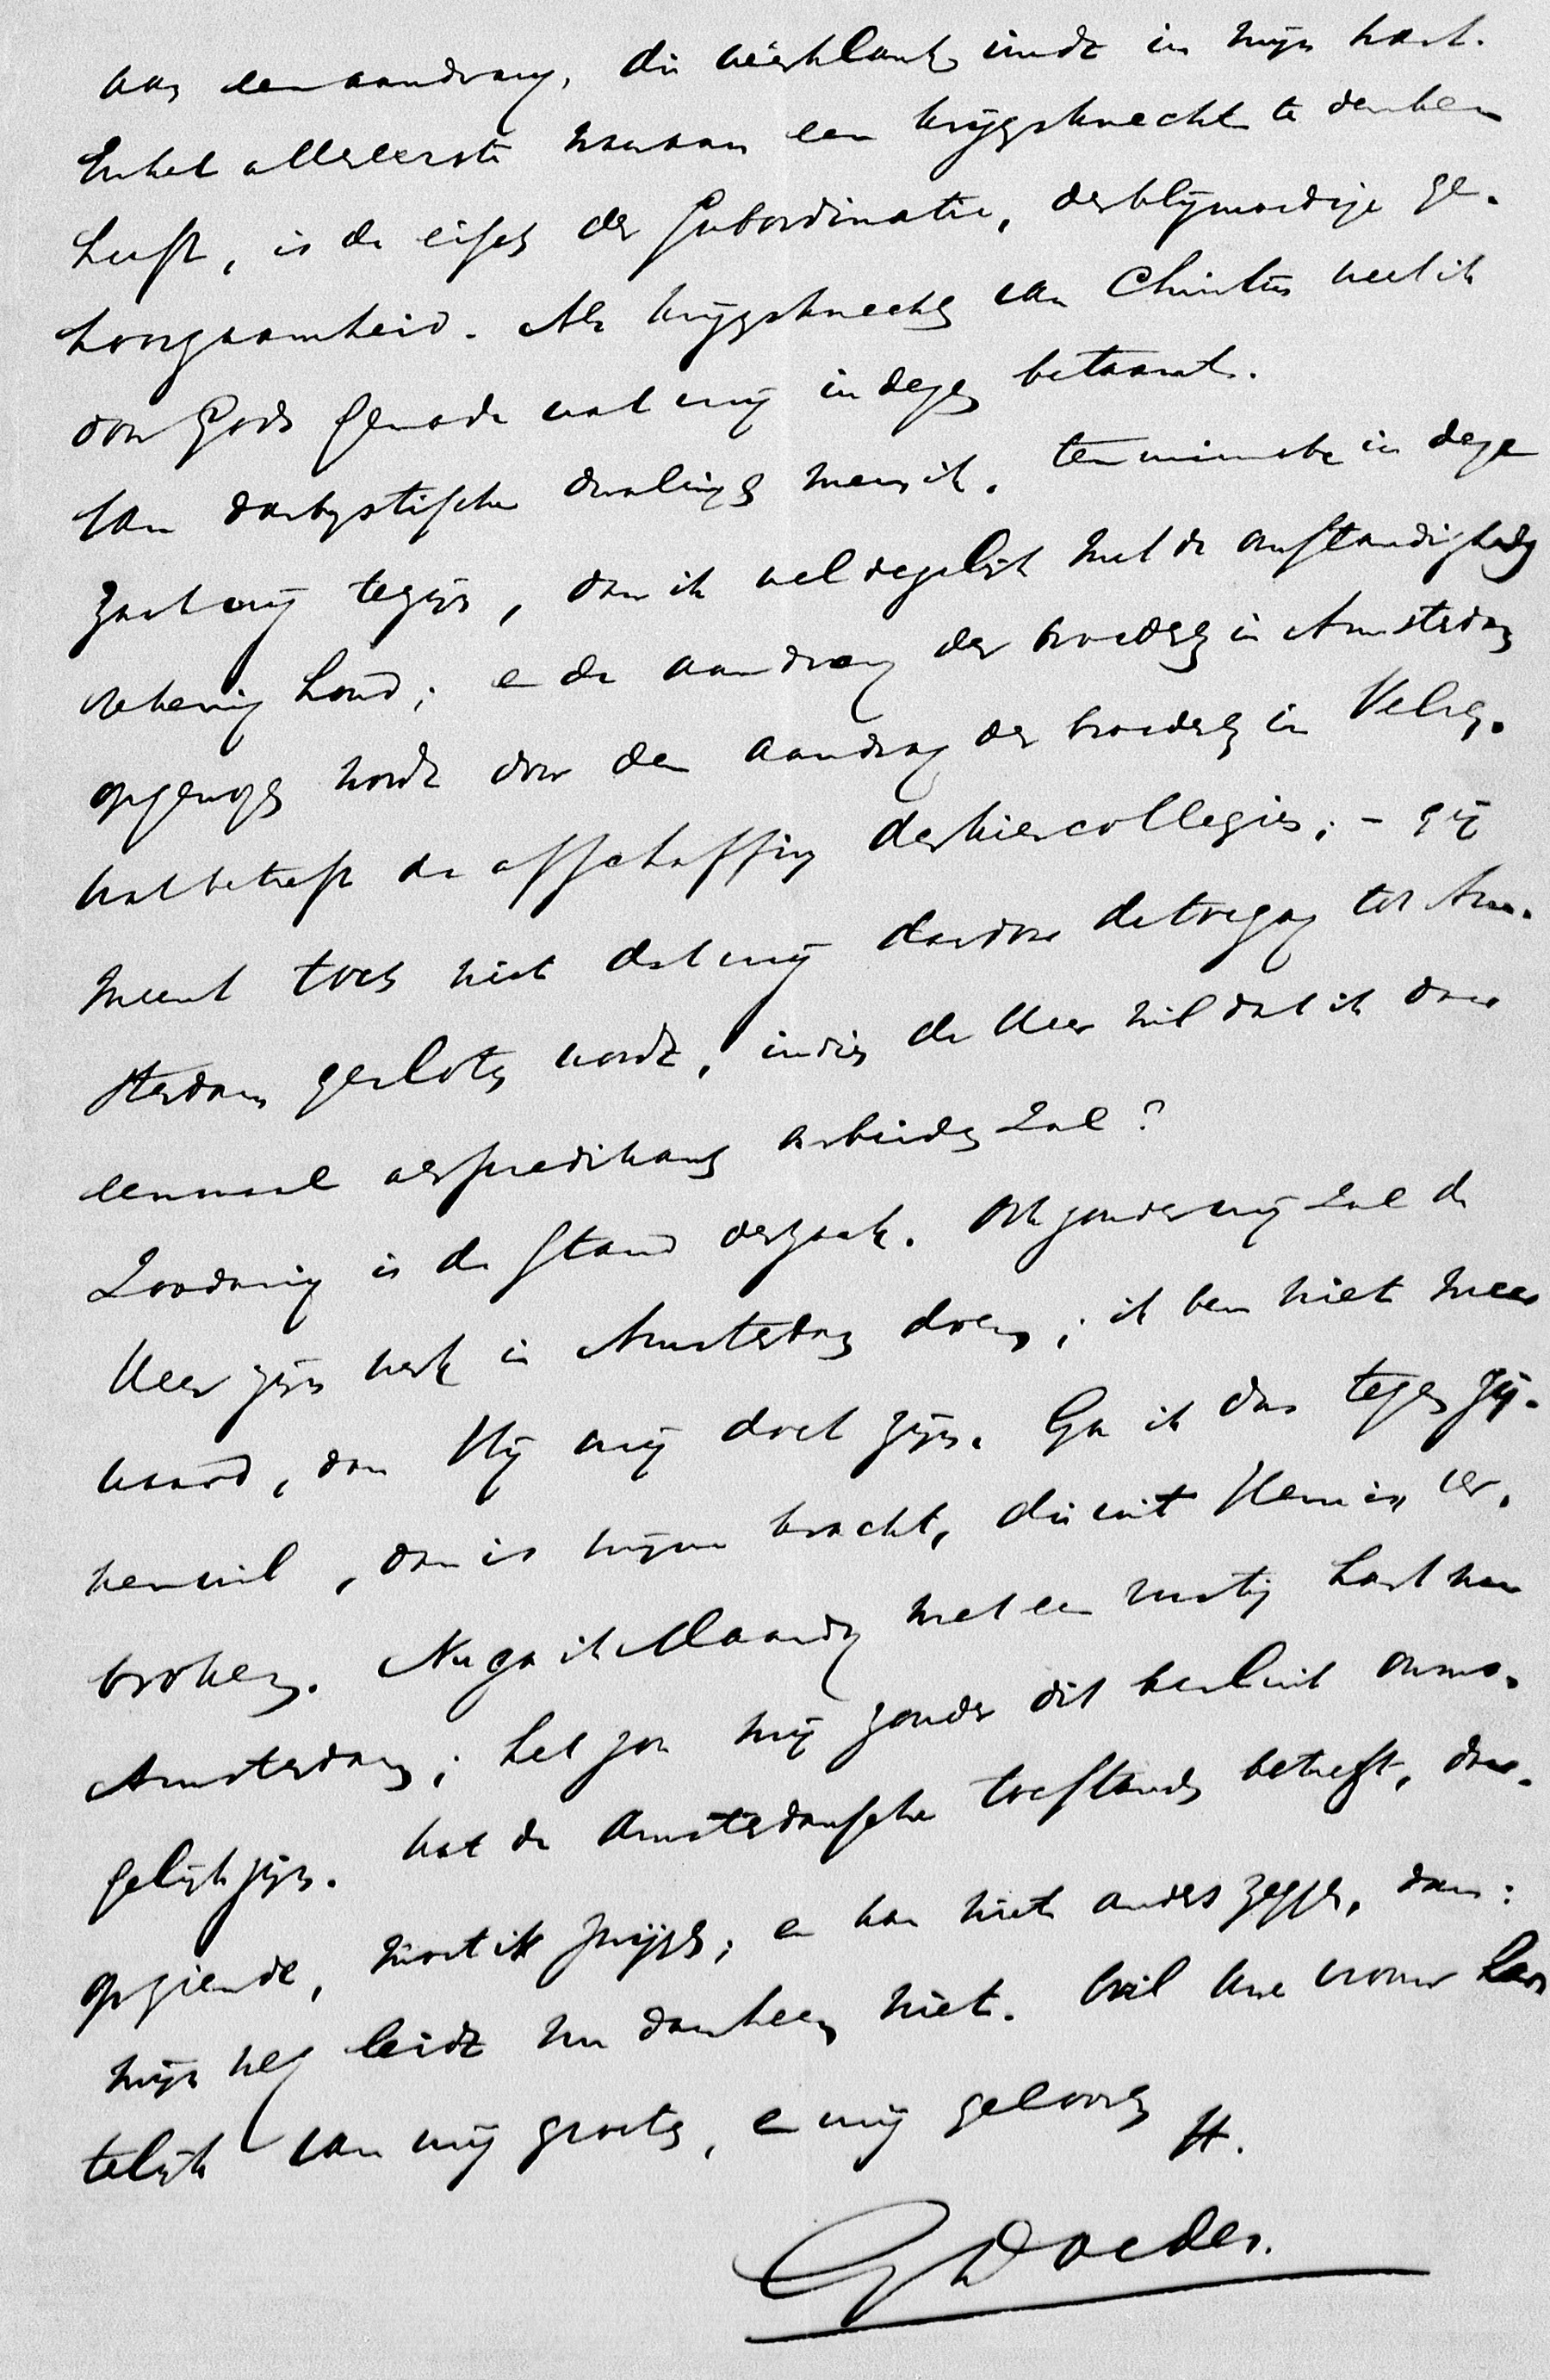 van den aandrang, die weêrklank vindt in mijn hart.
En het allereerste waaraan een krijgsknecht te denken
heeft, is de eisch der subordinatie, der blijmoedige ge-
hoorzaamheid. Als krijgsknecht van Christus weet ik
door Gods genade wat mij in dezen betaamt.
Van darbystische dwalingen meen ik, ten minste in deze
zaak vrij te zijn, daar ik wel degelijk met de omstandigheden
rekening houd; en de aandrang der broeders in Amsterdam
opgewogen wordt door den aandrang der broeders in Velsen.
Wat betreft de afschaffing der kiescollegies; – gij
meent toch niet dat mij daardoor de toegang tot Am-
sterdam gesloten wordt, indien de Heer wil dat ik daar
eenmaal als predikant arbeiden zal?
Zoodanig is de stand der zaak. Ook zonder mij zal de
Heer zijn werk in Amsterdam doen; ik ben niet meer
waard, dan Hij mij doet zijn. Ga ik dus tegen zij-
nen wil, dan is mijne kracht, die uit Hem is, ver-
broken. Nu ga ik Maandag met een rustig hart naar
Amsterdam; het zou mij zonder dit besluit onmo-
gelijk zijn. Wat de Amsterdamsche toestanden betreft, daar-
op ziende, moet ik zwijgen; en kan niet anders zeggen, dan:
mijn weg leidt nu daarheen niet. Wil uwe vrouw har-
telijk van mij groeten, en mij gelooven tt.
Doedes.